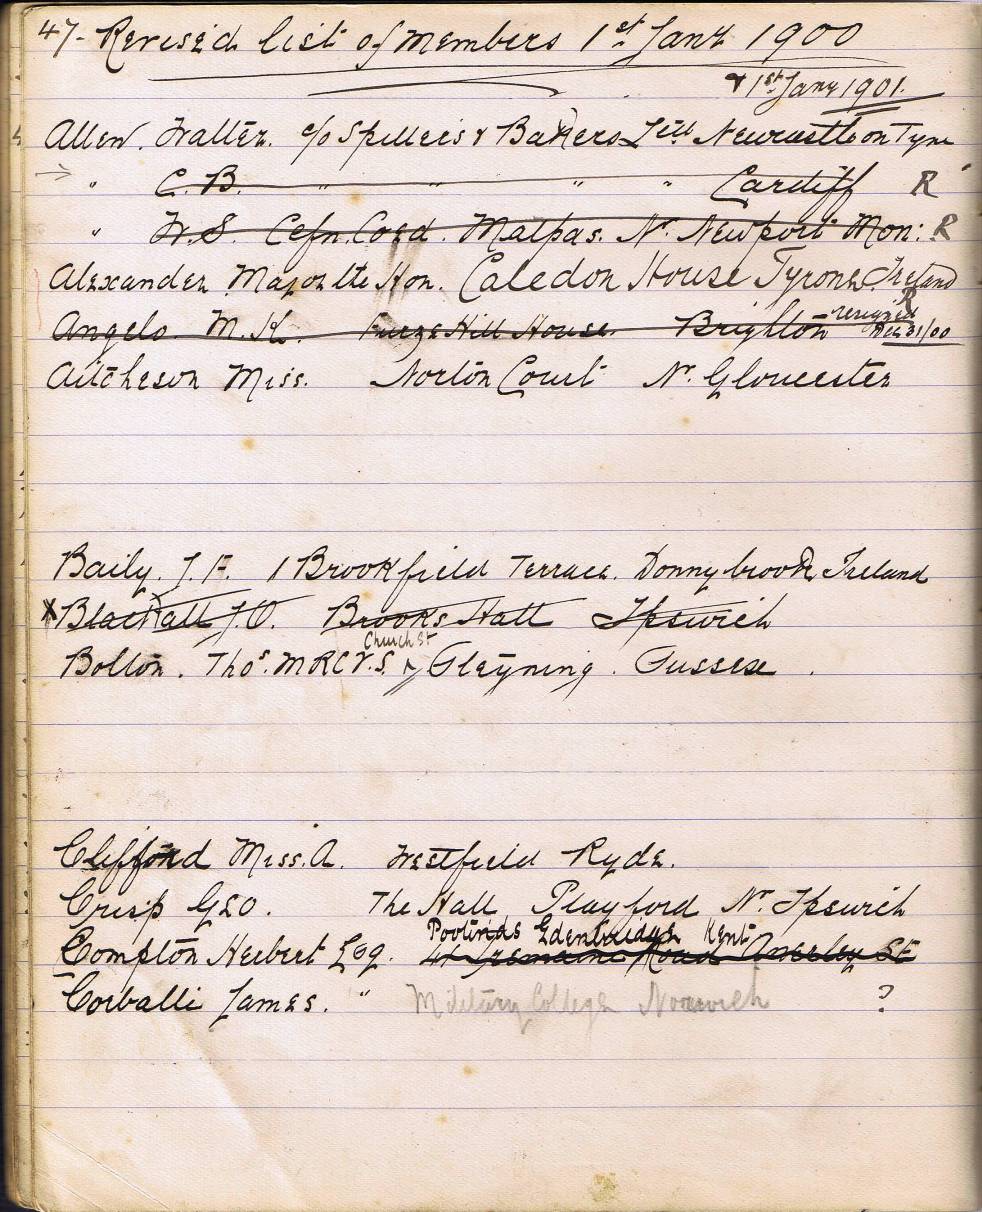 47- Revised list of Members 1st Jany 1900
& 1st Jany 1901.
Allen. Walter. c/o Spillers & Bakers Ltd Newcastle on Tyne
" C. B. " " " " Cardiff R
" W. S. Cefn. Coed. Malpas. Nr. Newport Mon: R
Alexander Major the Hon. Caledon House Tyrone Ireland
R
Angelo. M. K. Furze Hill House. Brighton resigned Dec 31/00
Aitcheson Miss. Norton Court Nr. Gloucester
Baily. J. F. 1 Brookfield Terrace. Donnybrook Ireland
X Blackall J. O. Brooks Hall Ipswich
Church St
Bolton. Thos. MRCV.S. Steyning. Sussex.
Clifford Miss. A. Westfield Ryde.
Crisp Geo. The Hall Playford Nr. Ipswich
Edenbridge Kent
Compton Herbert Esq. Road Anerley SE
Corballi James. " Military College Norwich ?